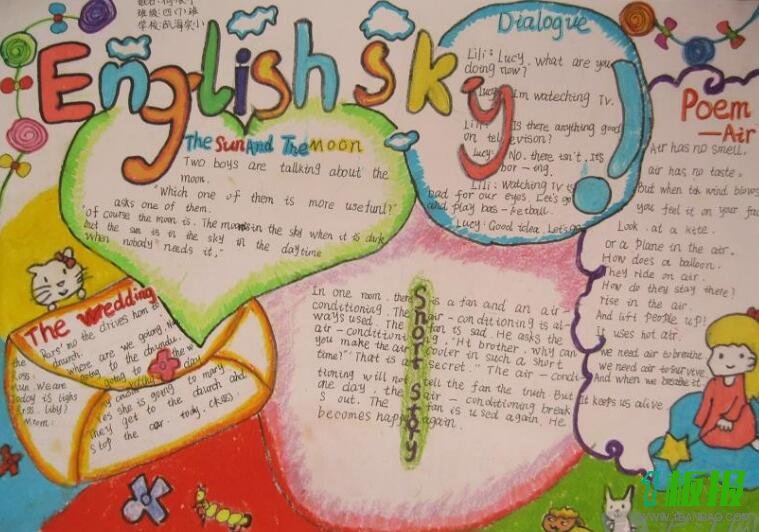 班级:四(7)班
English sky
Dialogue
Lili: Lucy, what are you
doing now?
Lucy: I'm wateching TV.
Lili: Is there anything good
on television?
Lucy: No, there isn't. It's
bor-ing.
Lili: Watching TV is
bad for our eyes. Let's go
and play bas-ketball.
Lucy: Good idea. Let's go
Poem
—Air
Air has no smell,
air has no taste.
But when teh wind blows
you feel it on your
Look at a kite.
or a plane in the air.
How does a balloon.
They ride on air.
How do they stay there?
rise in the air.
And lift people up!
It uses hot air.
we need air to breathe
we need air to survive
And when we breathe it.
It keeps us alive
The Sun And The Moon
Two boys are talking about the
moon.
"Which one of them is more usefunl?"
asks one of them.
"of course the moon is. The moon is in the sky when it is dark
but the sun is in the sky in the daytime
when nobody needs it."
The wedding
the drives
the church.
where are we going.
going to the
We are going to the
Today is
she is going to
They get to the church and
stop the car.
Short story
In one room, there is a fan and an air-
conditioning. The air-conditioning is al-
ways used. The fan is sad. He asks the
air-conditioning, "Hi brother, why can
you make the air cooler in such a short
time?" "That is a secret." The air-condi-
tioning will not tell the fan the truth. But
one day, the air-conditioning break
s out. The fan is used again. He
becomes happy again.
板报
WWW.1BANBAO.COM